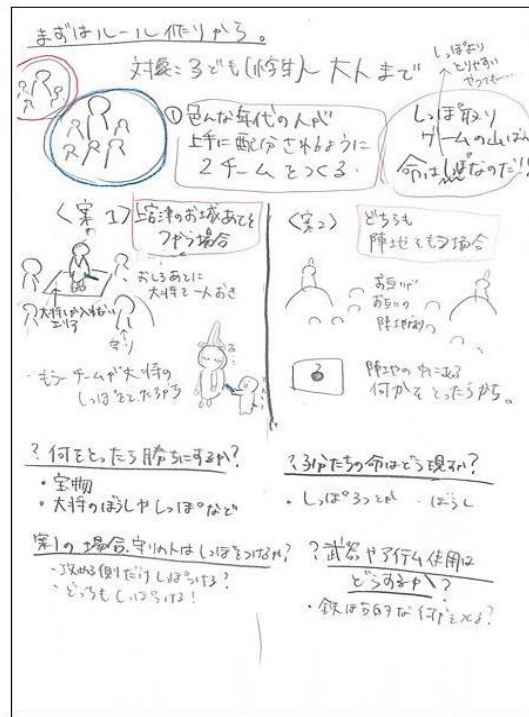 まずはルール作りから。
対象：子ども(小学生)〜大人まで
①色んな年代の人が
上手に配分されるように
2チームをつくる。
しっぽ取り
ゲームの山ばん
命はしっぽなのだ!!!
〈案1〉上宮津のお城あとを
つかう場合
おしろあとに
大将を一人おき
大将しか入れない
エリア
守り
・もう一チームが大将の
しっぽをとったらかち
〈案2〉どちらも
陣地をもつ場合
お互いが
お互いの
陣地の中にある
何かをとったらかち。
?何をとったら勝ちにするか?
・宝物
・大将のぼうしやしっぽなど
?自分たちの命はどう現すか?
・しっぽ3つとか ・ぼうし
案1の場合、守りの人はしっぽをつけるか?
・攻める側だけしっぽつける?
・どっちもしっぽつける!
?武器やアイテム使用は
どうするか?